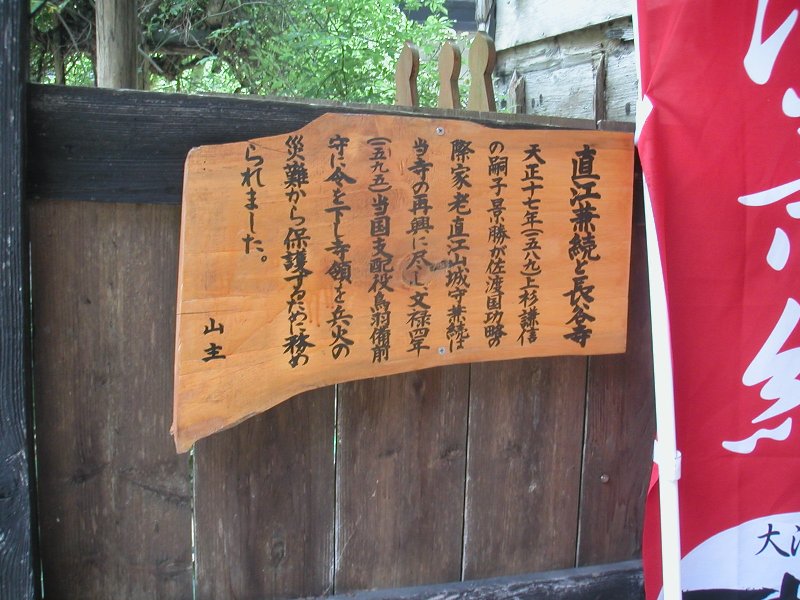 直江兼続と長谷寺
天正十七年(一五八九)上杉謙信
の嗣子景勝が佐渡国功略の
際家老直江山城守兼続は
当寺の再興に尽し文禄四年
(一五九五)当国支配役鳥羽備前
守に令を下し寺領を兵火の
災難から保護するために務め
られました。
山主